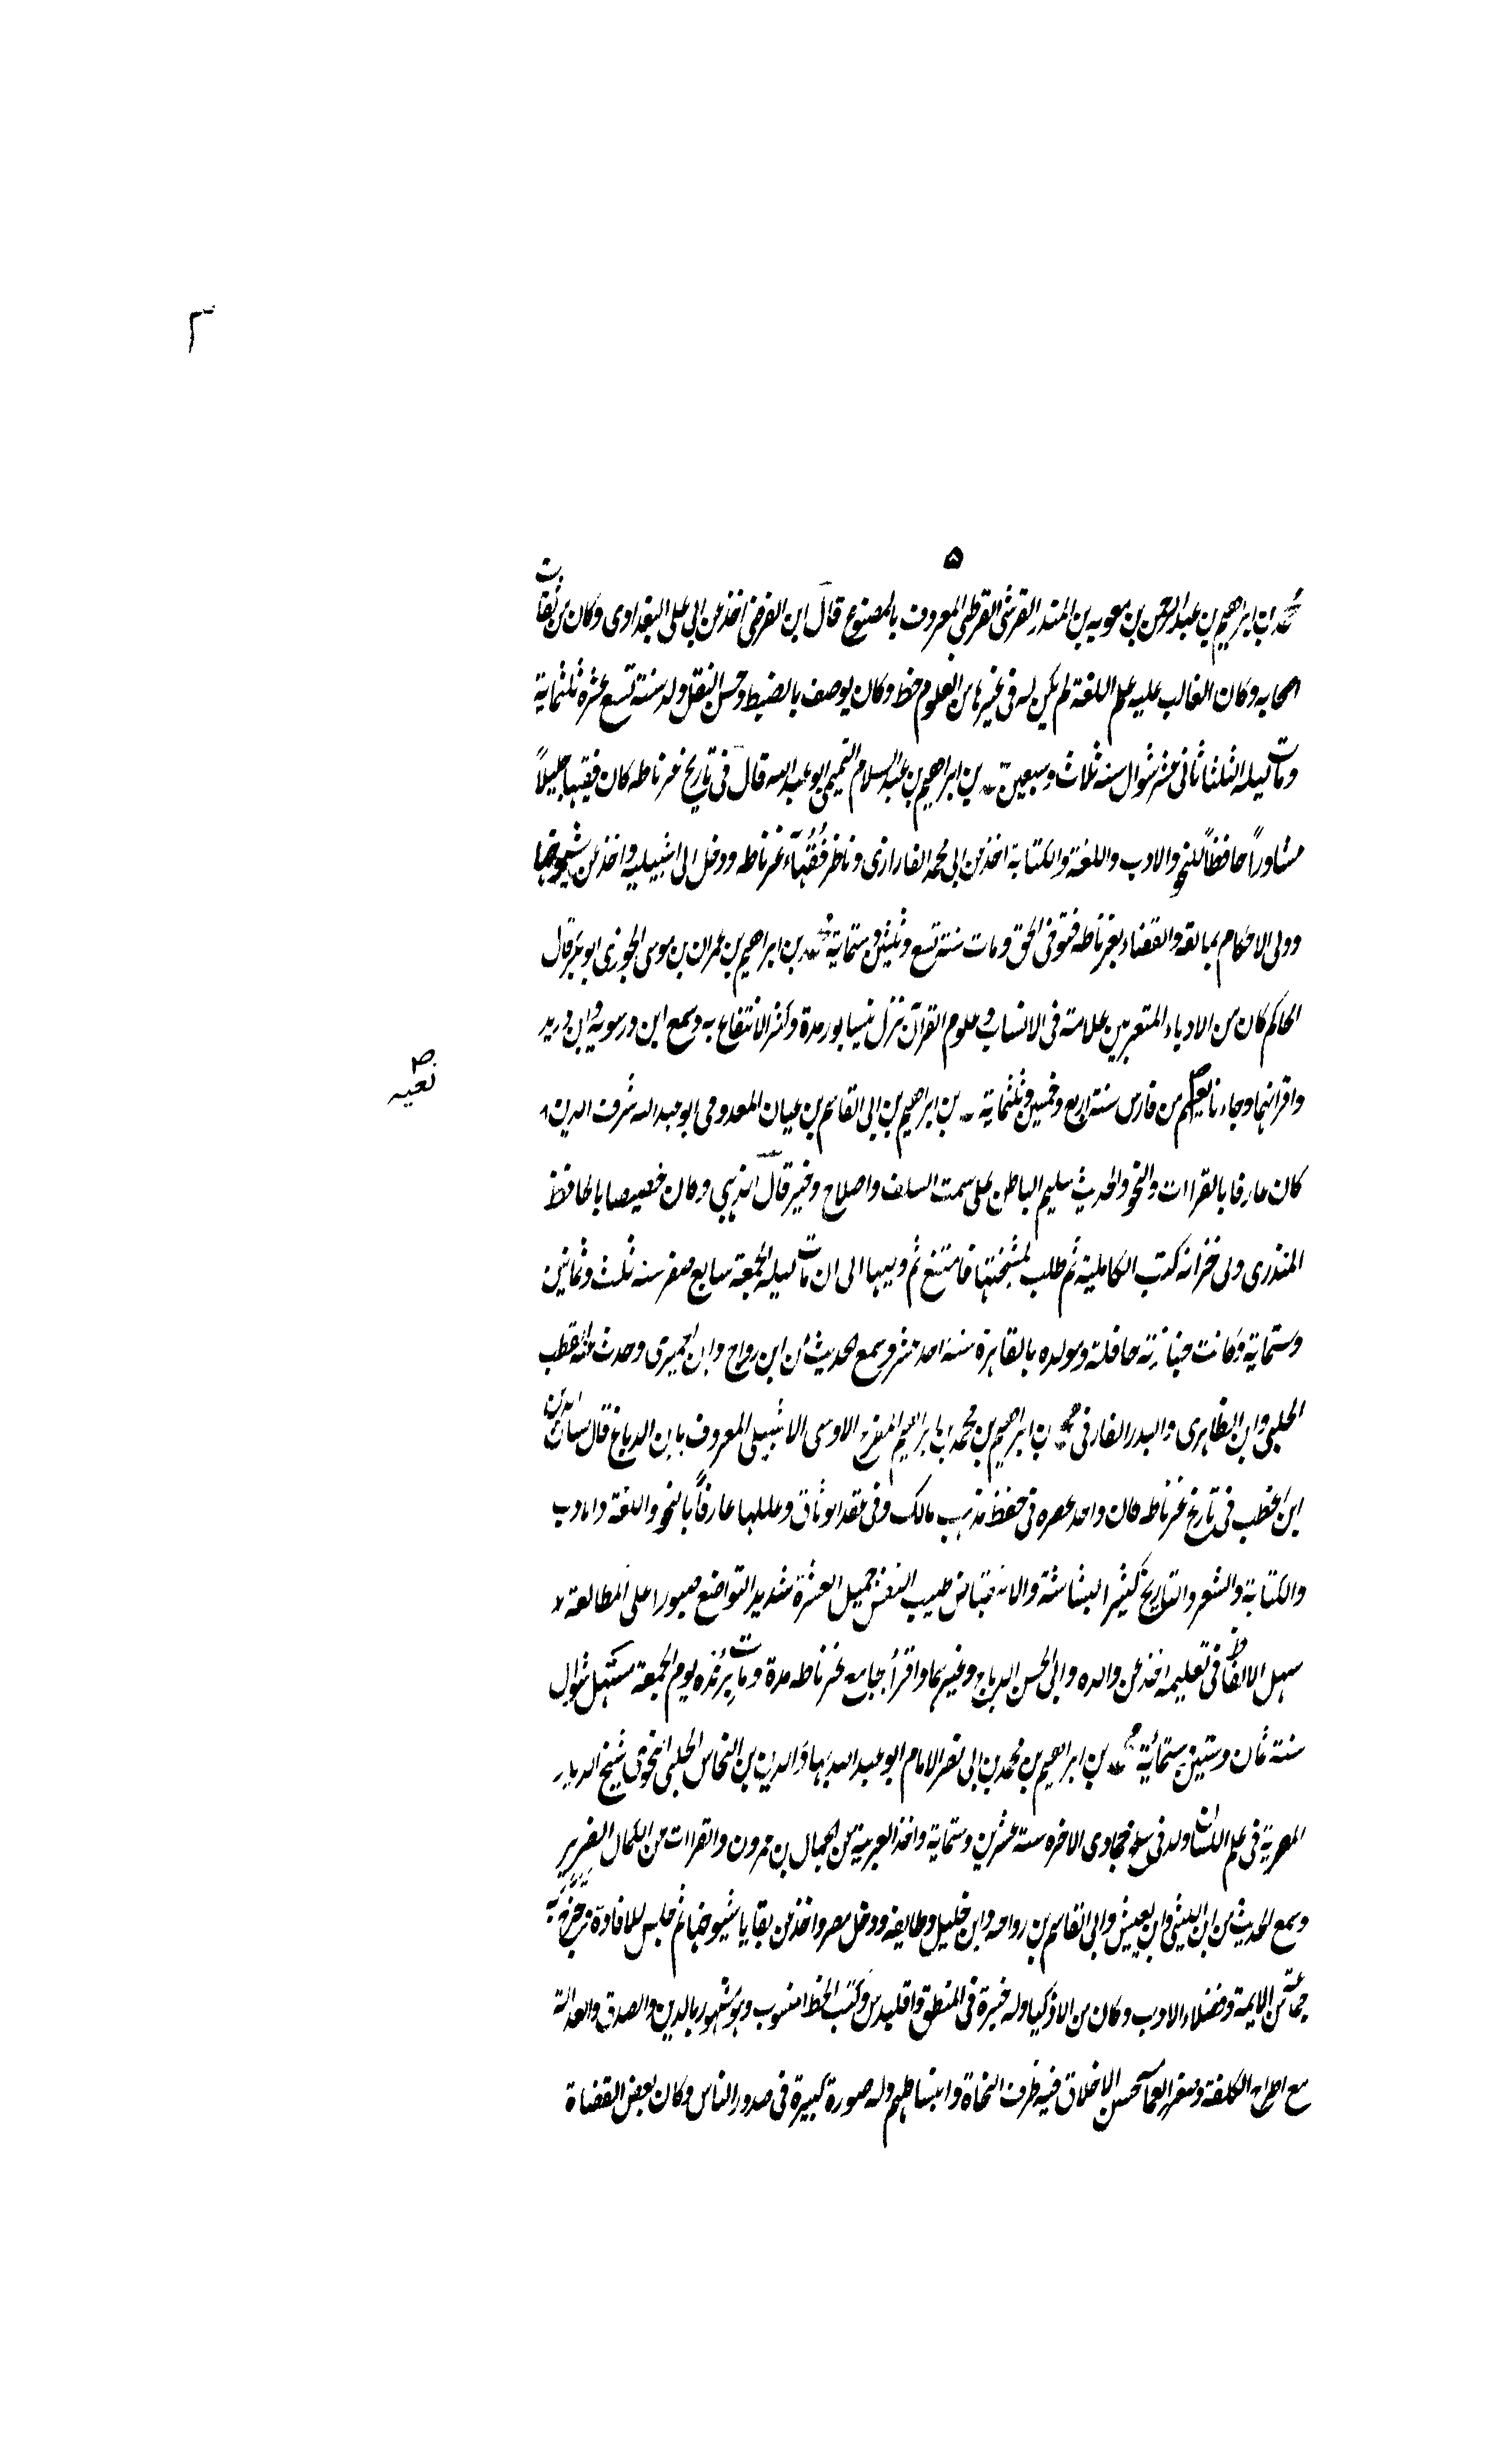 ٣
٥
محمد بن ابراهيم بن عبد الرحمن بن معويه بن المنذر القرشى القرطبى المعروف بالمصنوع قال ابن الفرضى اخذ عن ابى على البغدادى وكان من ثقات
اصحابه وكان الغالب عليه علم اللغة لم يكن له فى غيرها من العلوم حظ وكان يوصف بالضبط وحسن النقل ولد سنة تسع عشرة ثلثماية
ومات ليله الثلثا ثانى عشر شوال سنه ثلاث وسبعين بن ابراهيم بن عبد السلام التميمى ابو عبد الله قال فى تاريخ غرناطه كان فقيها جليلاً
مشاوراً حافظاً للنحو والادب واللغة والكتابة اخذ من ابى محمد الفارازى وناظر فُقُهآء غرناطه ودخل الى اشبيليه واخذ عن شيوخها
وولى الاحكام بمالقه والقضاء بغرناطه فتوفى الحق ومات سنة تسع وثلثين وستماية محمد بن ابراهيم بن عمران بن موسى الجوزى ابو بكر قال
الحاكم كان من الادباء المتعربين علامة فى الانساب وعلوم القرآن نزل نيسابور مدة وكثر الانتفاع به وسمع ابن درسويه وابن دريد
واقرانهما وجاء نا نعيهم من فارس سنة اربع وخمسين وثلثماية بن ابراهيم بن ابى القاسم بن عيان المعدومى ابو عبد الله شرف الدين
نعيه
كان عارفا بالقراات والنحو والحديث سليم الباطن على سمت السلف واصلاح وخير قال الذهبى وكان خصيصا بالحافظ
المنذرى ولى خزانه كتب الكاملية ثم طلب لمشيختها فامتنع ثم وليها الى ان مات ليله الجمعة سابع صفر سنه ثلث وثمانين
وستماية وكانت جنازته حافلة ومولده بالقاهرة سنة احد عشر وسمع الحديث من ابن رواج وابن الجميزى وحدث عنه القطب
الحلبى وابن الظاهرى والبدر الفارقى محمد بن ابراهيم بن محمد بن ابراهيم المفرج الاوسى الاشبيلى المعروف بابن الدباغ قال لسان الدين
ابن الخطيب فى تاريخ غرناطه كان واحد عصره فى حفظ مذهب مالك وفى عقد الوثاق وعللها عارفاً بالنحو واللغة والادب
والكتابة والشعر والتاريخ كثير البشاشة والانقباض طيب النفس جميل العشرة شديد التواضع صبورا على المطالعة
سهل الالفاظ فى تعليمه اخذ عن والده وابى الحسن الدباج وغيرهما واقرأ بجامع غرناطه مدة ومات برُندَه يوم الجمعة مستهل شوال
سنة ثمان وستين وستمائة محمد بن ابراهيم بن محمد بن ابى نصر الامام ابو عبد الله بهاء الدين بن النحاس الحلبى النحوى شيخ الديار
المصرية فى علم اللسان ولد فى سلخ جمادى الاخره سنة عشرين وستماية واخذ العربية عن الجمال بن عمرون والقراات من الكمال الضرير
وسمع الحديث من ابن الليثى وابن يعيش وابى القاسم بن رواحه وابن خليل وطايفه ودخل مصر واخذ عن بقايا شيوخها ثم جلس للافادة تخرج به
جماعة من الايمة وفضلاء الادب وكان من الاذكيا وله خبرة فى المنطق واقليدس وكتب الخط المنسوب وهو مشهور بالدين والصدق والعدالة
مع اطراح الكلفة وصغر العمامة حسن الاخلاق فيه ظرف النحاة وانبساطهم وله صورة كبيرة فى صدور الناس وكان بعض القضاة